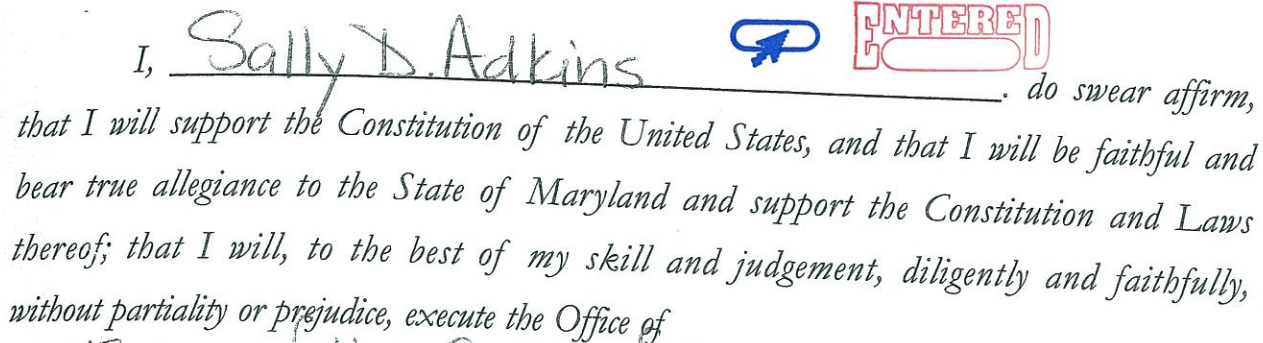 ENTERED
I, Sally D. Adkins . do swear affirm,
that I will support the Constitution of the United States, and that I will be faithful and
bear true allegiance to the State of Maryland and support the Constitution and Laws
thereof; that I will, to the best of my skill and judgement, diligently and faithfully,
without partiality or prejudice, execute the Office of